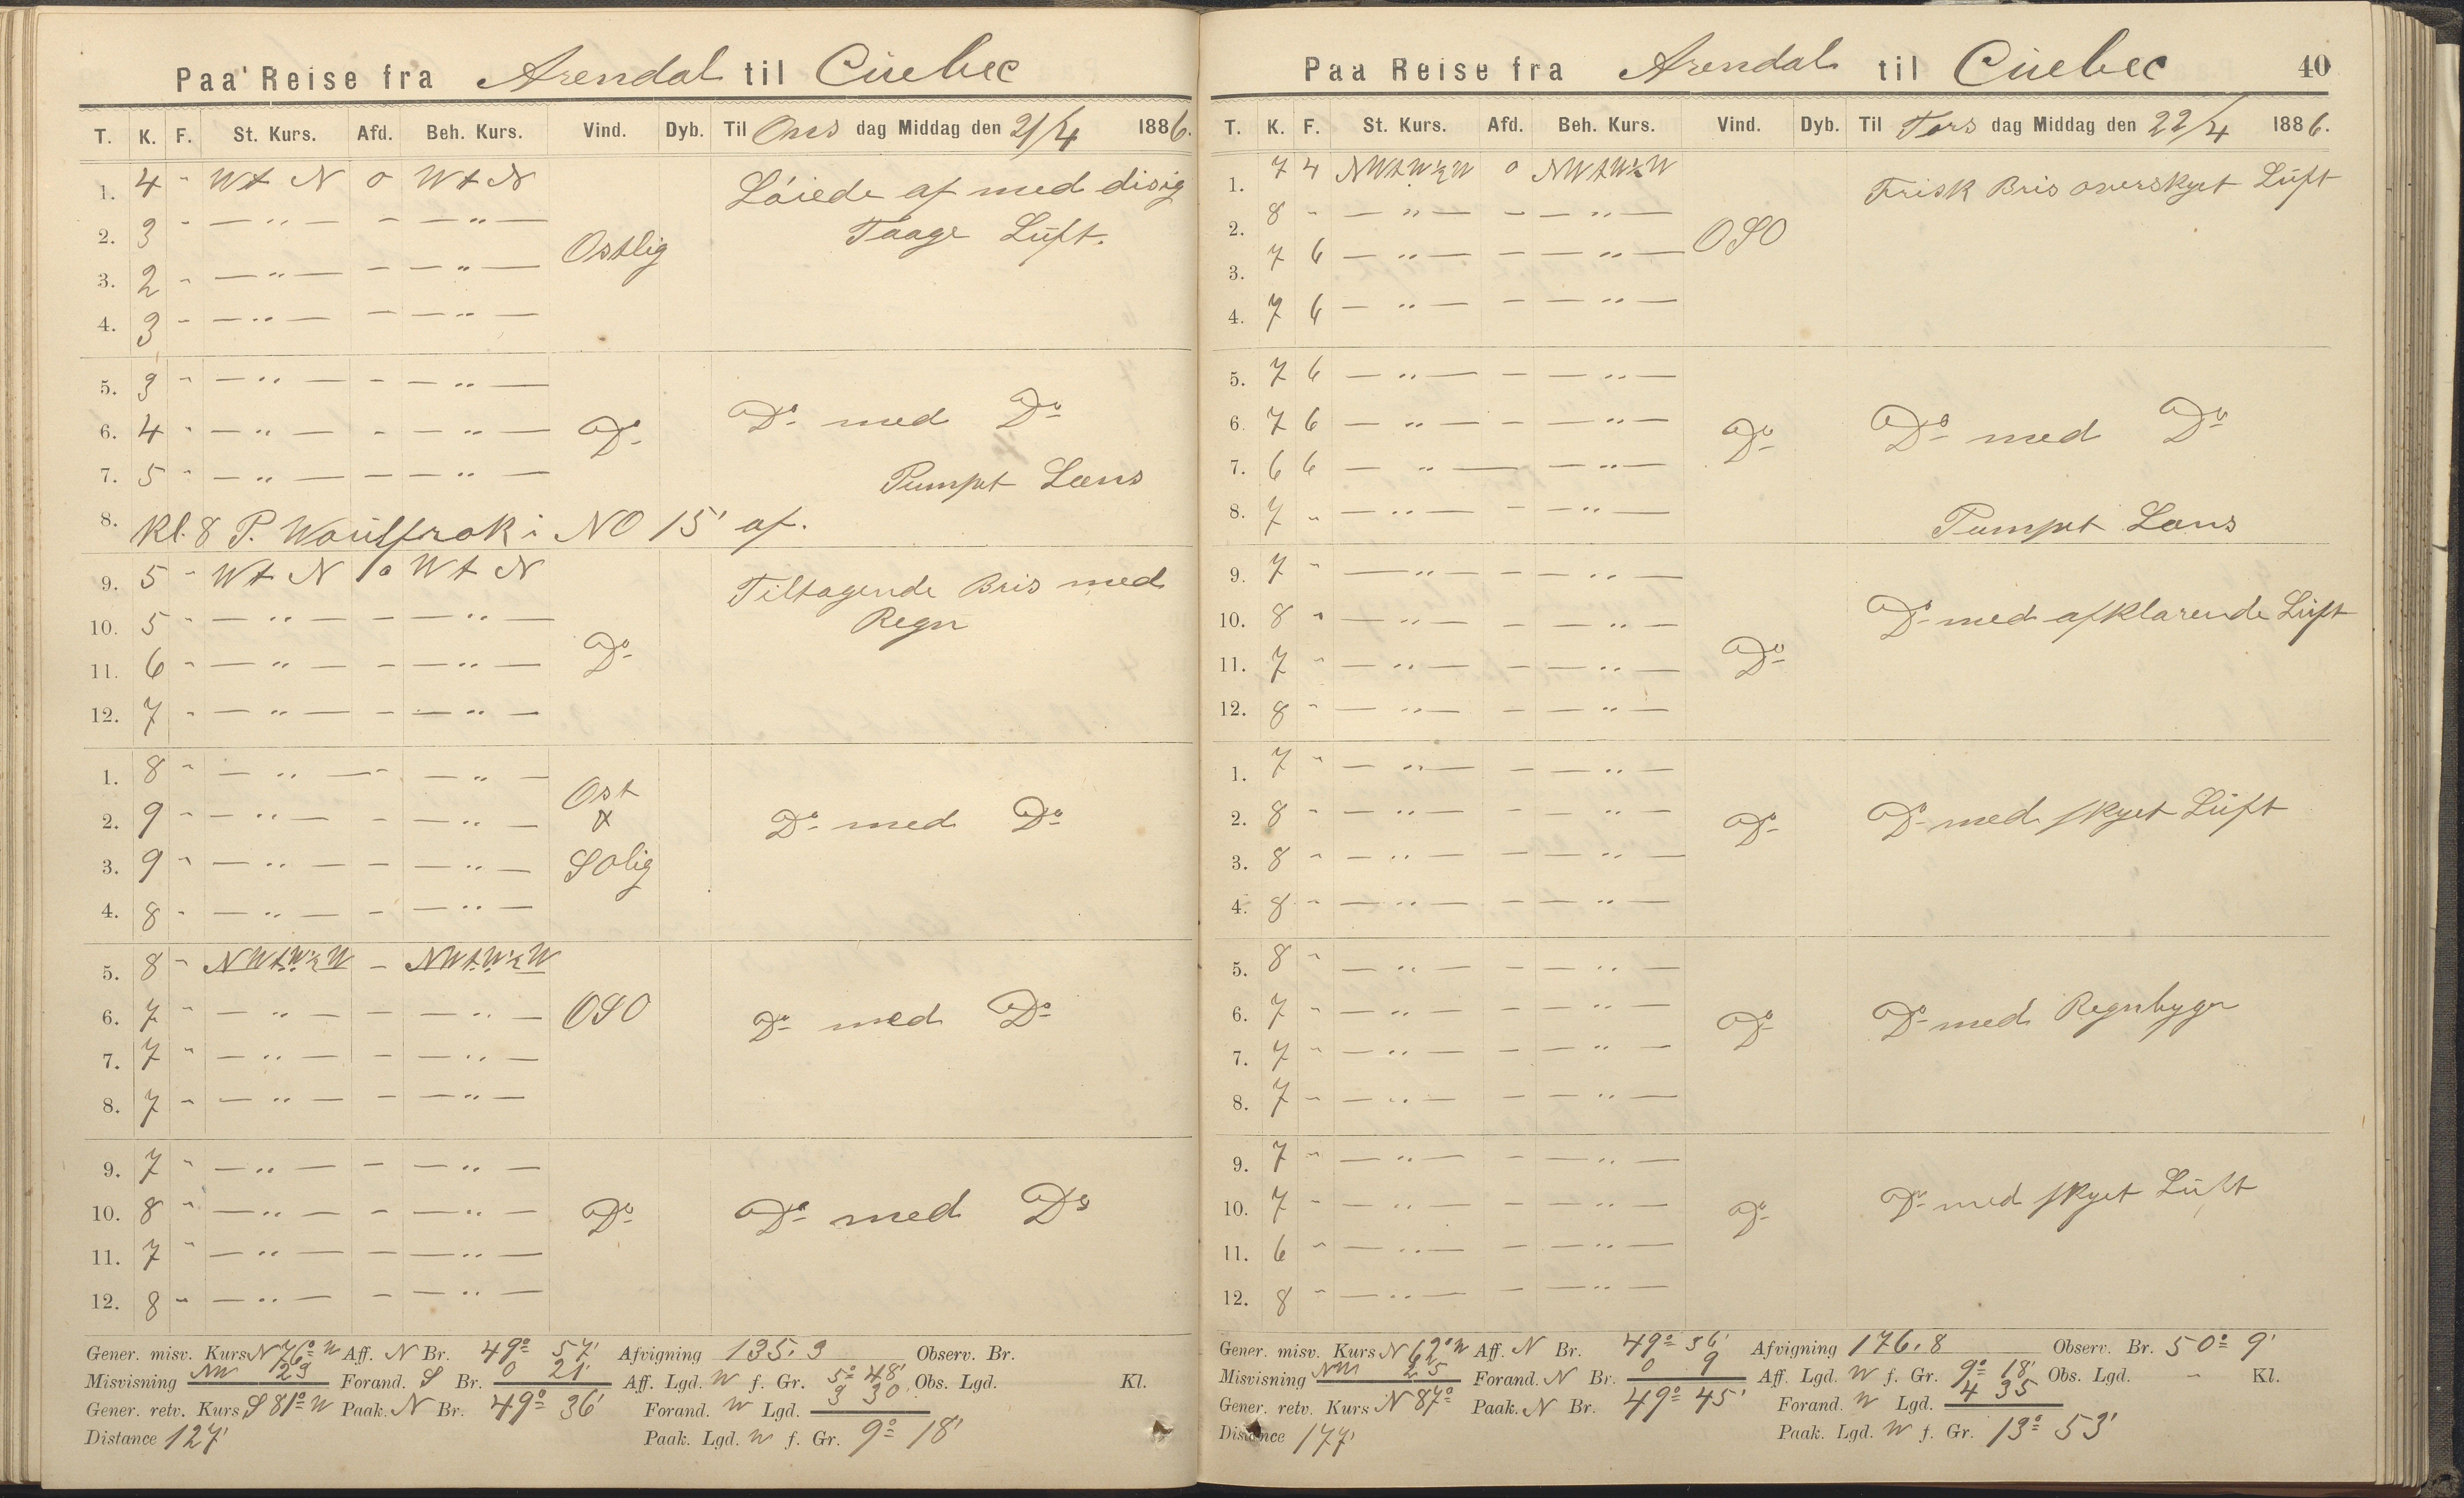 Paa Reise fra Arendal til Cuebec
T. K. F. St. Kurs. Afd. Beh. Kurs. Vind. Dyb. Til Ons dag Middag den 21/4 1886.
1. 4 " Wt N o Wt N Løiede af med disig
2. 3 " — " — — — " — Ostlig Taage Luft.
3. 2 " — " — — — " —
4. 3 " — " — — — " —
5. 3 " — " — — — " —
6. 4 " — " — — — " — Do Do med Do
7. 5 " — " — — — " — Pumpet Læns
8. Kl. 8 P. i NO 15' af.
9. 5 " Wt N o Wt N Tiltagende Bris med
10. 5 " — " — — — " — Regn
11. 6 " — " — — — " — Do
12. 7 " — " — — — " —
1. 8 " — " — — — " — Ost
2. 9 " — " — — — " — & Do med Do
3. 9 " — " — — — " — SOlig
4. 8 " — " — — — " —
5. 8 " NWtW½W — NWtW½W
6. 7 " — " — — — " — OSO Do med Do
7. 7 " — " — — — " —
8. 7 " — " — — — " —
9. 7 " — " — — — " —
10. 8 " — " — — — " — Do Do med Do
11. 7 " — " — — — " —
12. 8 " — " — — — " —
Gener. misv. Kurs N 76° W Aff. N Br. 49° 57' Afvigning 135.3 Observ. Br.
Misvisning NW 29 Forand. S Br. 0 21' Aff. Lgd. W f. Gr. 5° 48' Obs. Lgd. Kl.
Gener. retv. Kurs S 81° W Paak. N Br. 49° 36' Forand. W Lgd. 3 30
Distance 127' Paak. Lgd. W f. Gr. 9° 18'
Paa Reise fra Arendal til Cuebec 40
T. K. F. St. Kurs. Afd. Beh. Kurs. Vind. Dyb. Til Tors dag Middag den 22/4 1886.
1. 7 4 NWtW½W o NWtW½W Frisk Bris overskyet Luft
2. 8 " — " — — — " — OSO
3. 7 6 — " — — — " —
4. 7 6 — " — — — " —
5. 7 6 — " — — — " —
6. 7 6 — " — — — " — Do Do med Do
7. 6 6 — " — — " —
8. 7 " — " — — — " — Pumpet Læns
9. 7 " — " — — — " —
10. 8 " — " — — — " — Do med afklarende Luft
11. 7 " — " — — — " — Do
12. 8 " — " — — — " —
1. 7 " — " — — — " —
2. 8 " — " — — — " — Do Do med skyet Luft
3. 8 " — " — — — " —
4. 8 " — " — — — " —
5. 8 " — " — — — " —
6. 7 " — " — — — " — Do Do med Regnbyger
7. 7 " — " — — — " —
8. 7 " — " — — — " —
9. 7 " — " — — — " —
10. 7 " — " — — — " — Do Do med skyet Luft
11. 6 " — " — — — " —
12. 8 " — " — — — " —
Gener. misv. Kurs N 62° W Aff. N Br. 49° 36' Afvigning 176.8 Observ. Br. 50° 9'
Misvisning NW 25 Forand. N Br. 0 9 Aff. Lgd. W f. Gr. 9° 18' Obs. Lgd. " Kl.
Gener. retv. Kurs N 87° Paak. N Br. 49° 45' Forand. W Lgd. 4 35
Distance 177' Paak. Lgd. W f. Gr. 13° 53'